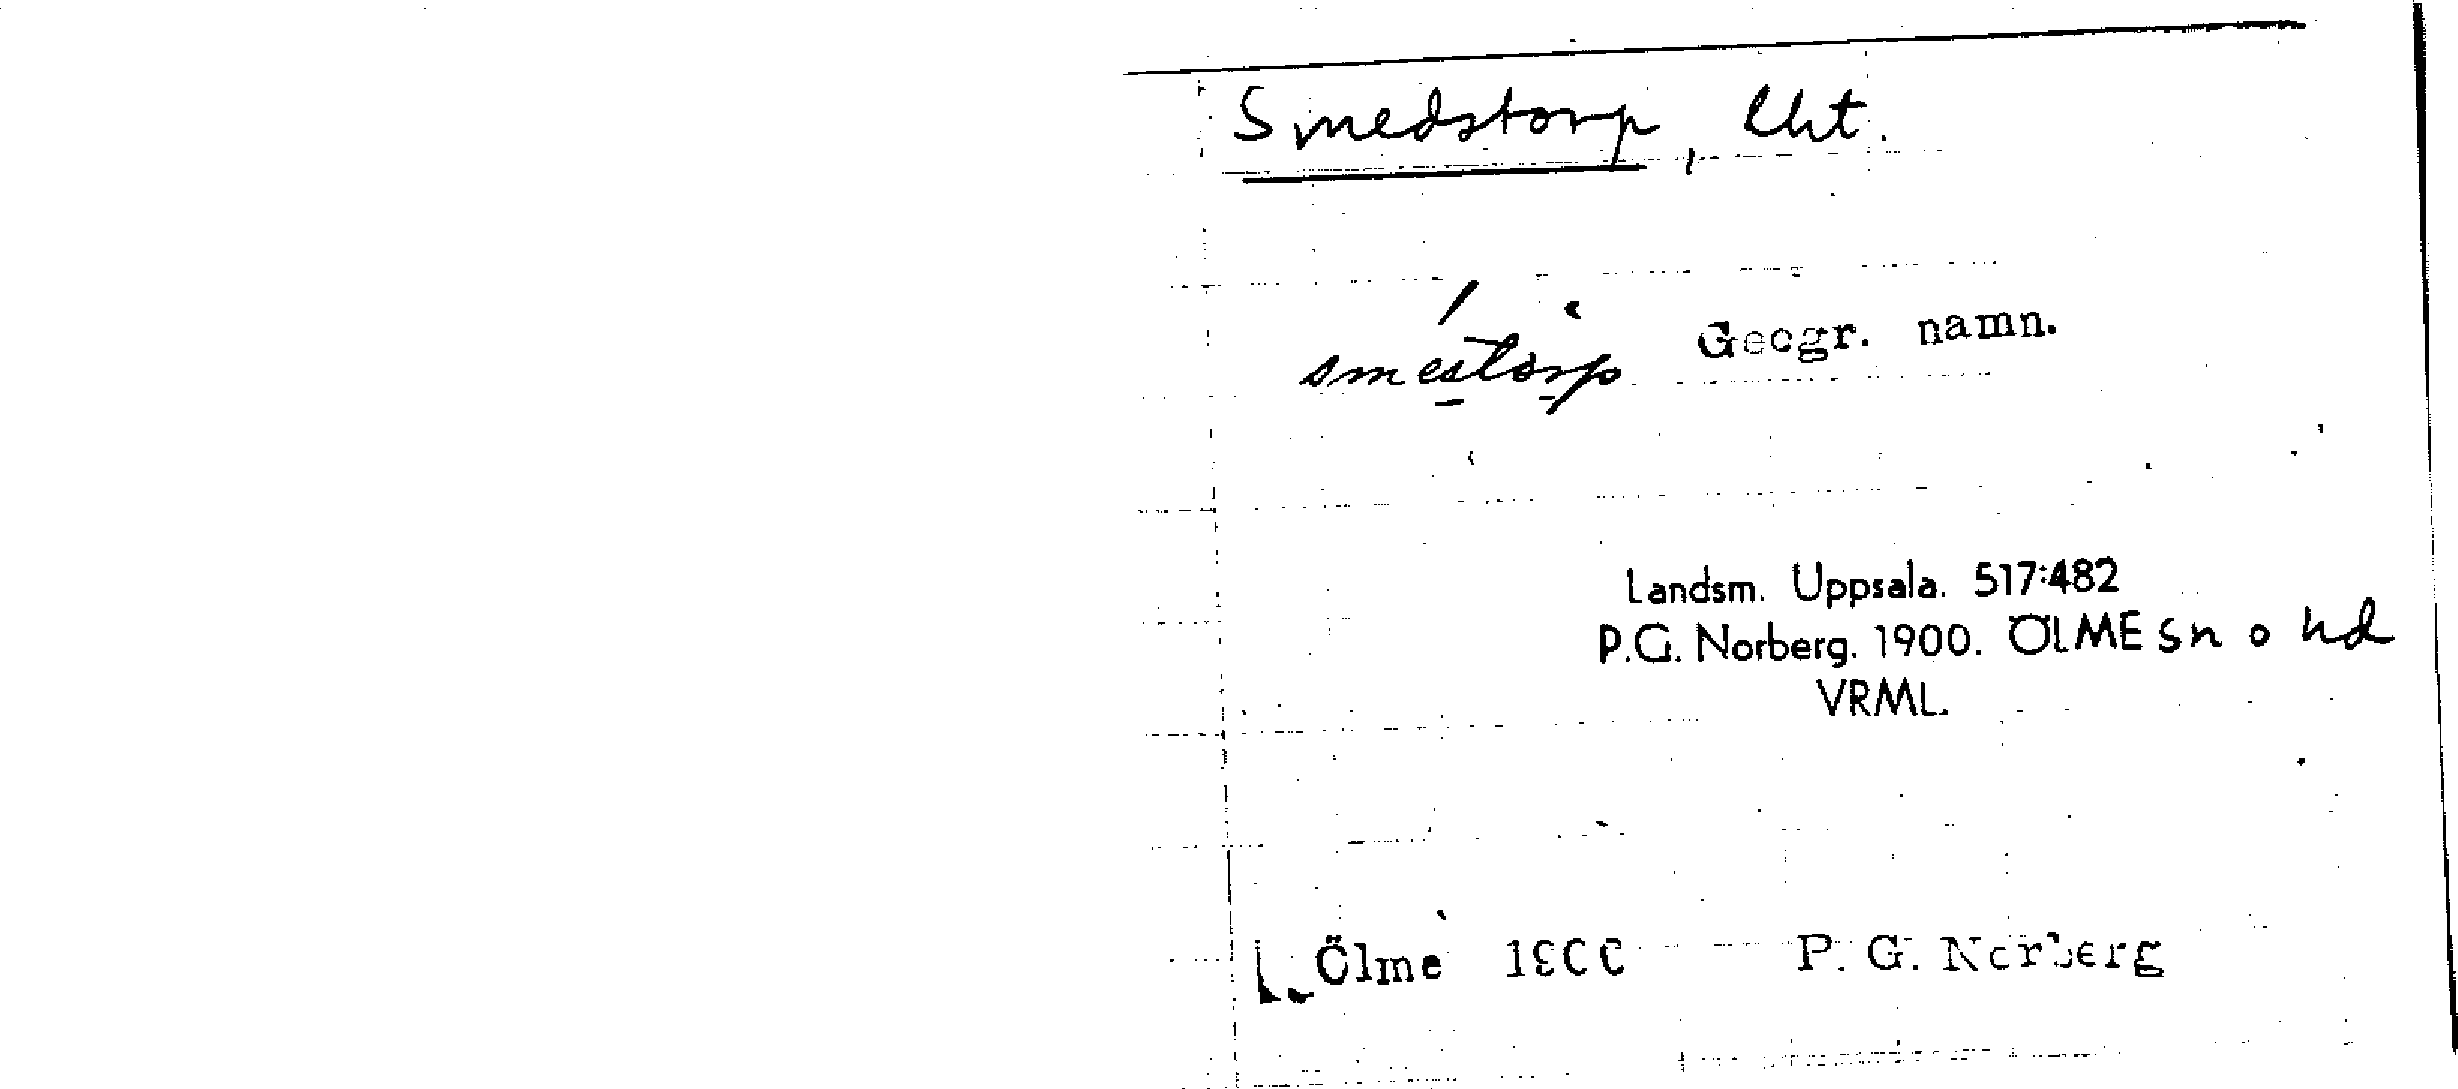 Smedstorp, lht.
smestorp Geogr. namn.
Landsm. Uppsala. 517:482
P.G. Norberg. 1900. ÖLME sn o hd
VRML.
Ölme 1900 P. G. Norberg